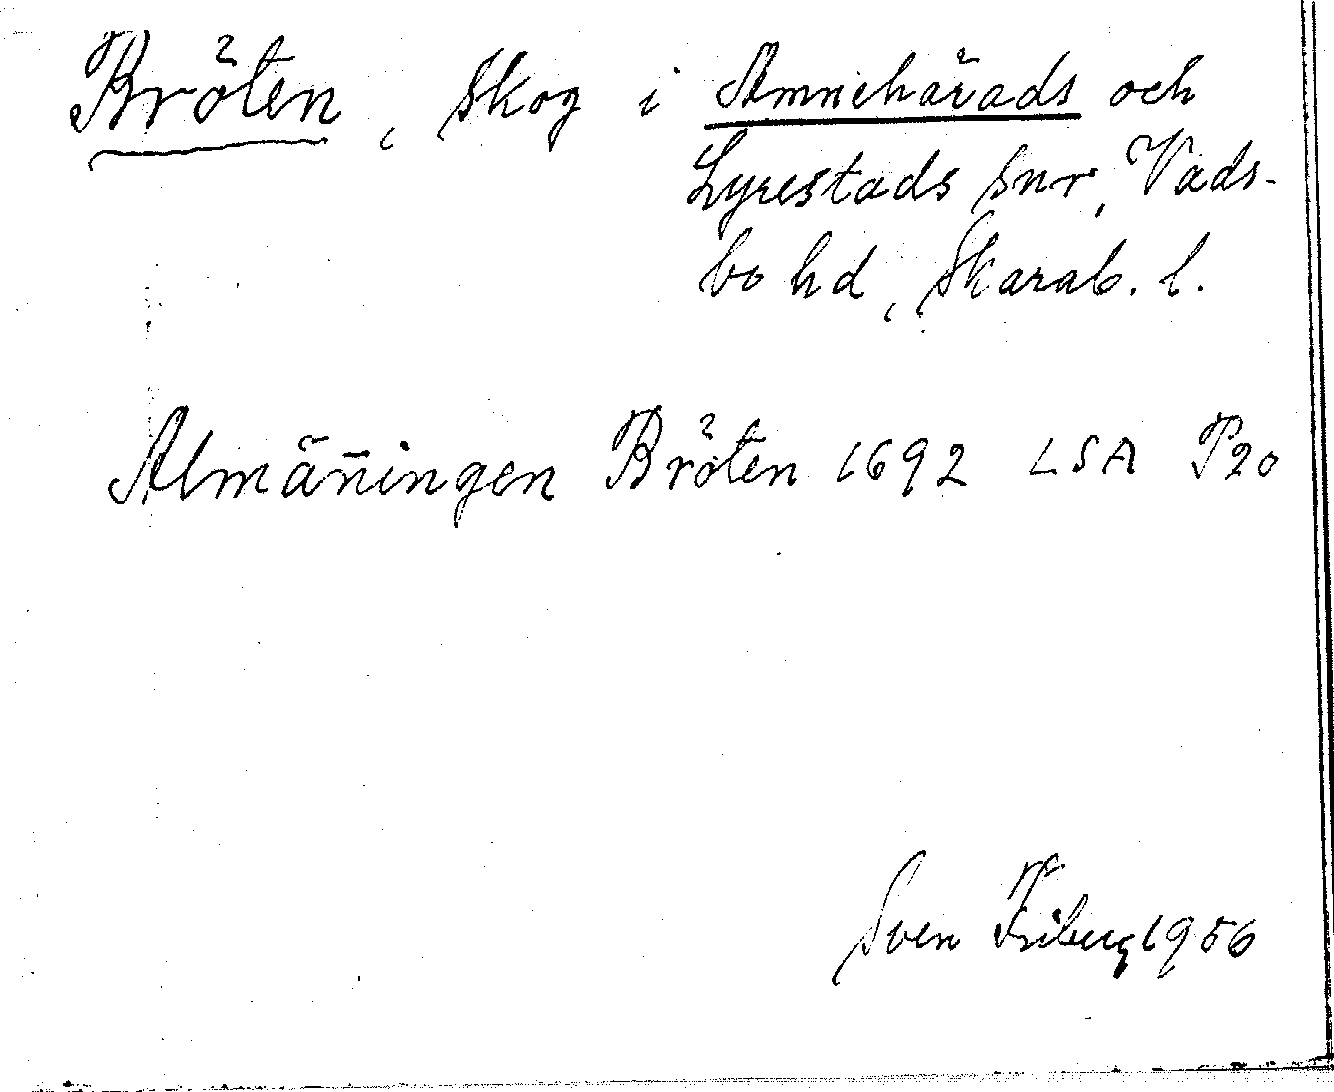 Bröten, Skog i Amnehärads och
Lyrestads snr, Vads-
bo hd, Skarab. l.
Almän̄ingen Bröten 1692 LSA P20
Sven Friberg 1956